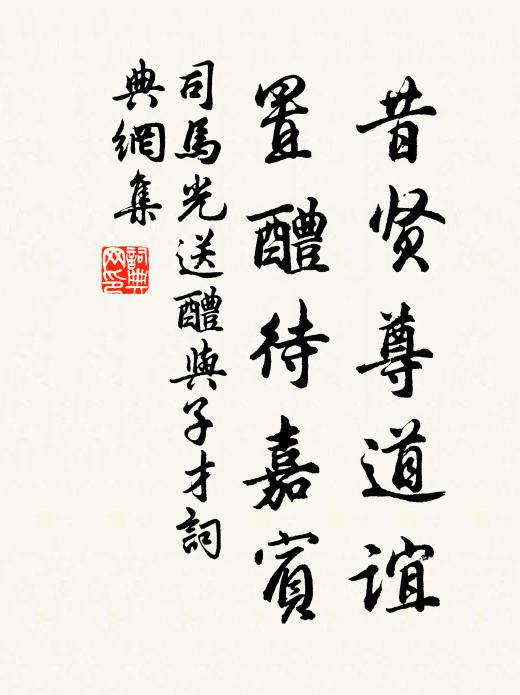 昔贤尊道誼
置醴待嘉賓
司馬光送醴與子才詞
典網集
詞典网印